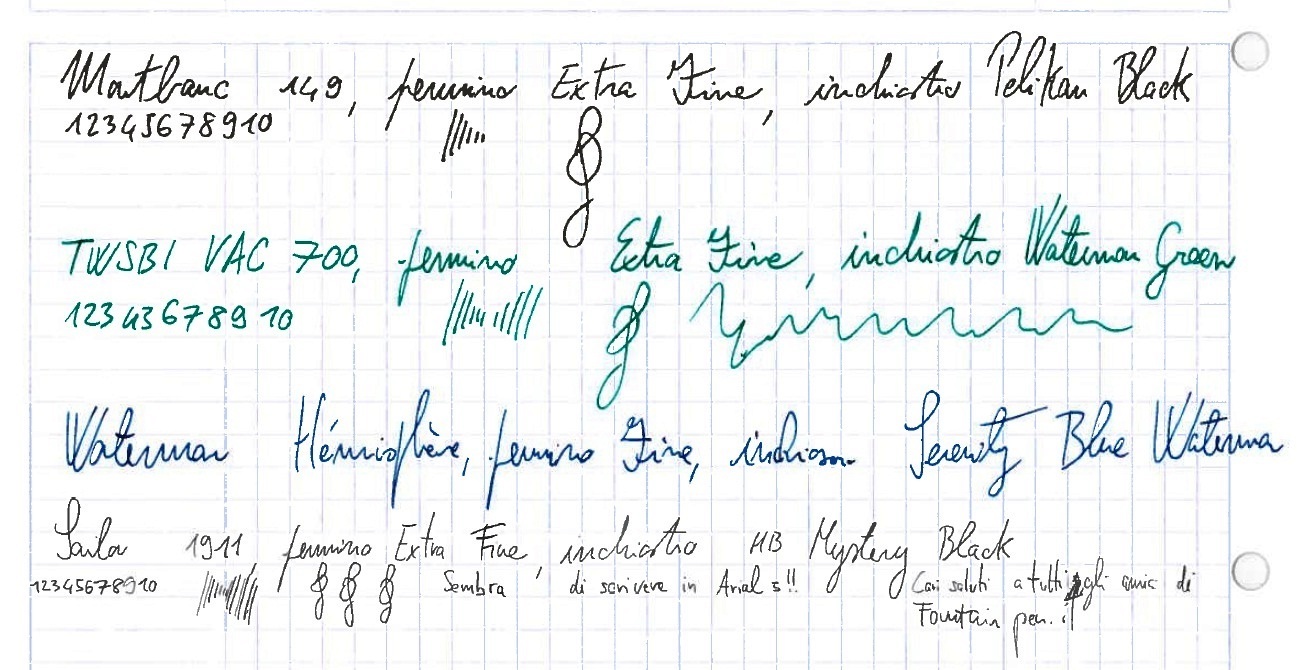 Montbanc 149, pennino Extra Fine, inchiostro Pelikan Black
12345678910
TWSBI VAC 700, pennino Extra Fine, inchiostro Waterman Green
12343678910
Waterman Hémisphère, pennino Fine, Serenity Blue Waterman
Sailor 1911 pennino Extra Fine, inchiostro MB Mystery Black
12345678910 Sembra di scrivere in Arial 5!! Cari saluti a tutti gli amici di
Fountain pen. it